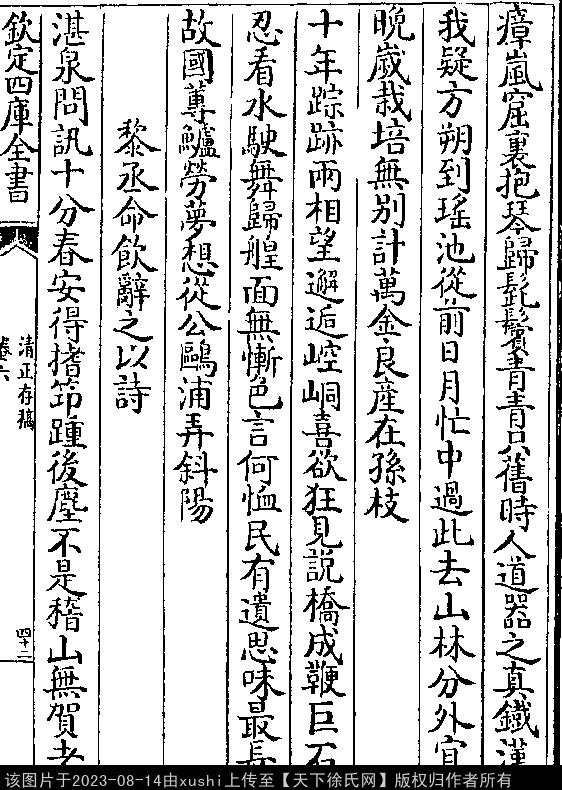 瘴嵐窟裏抱琴歸髭鬢青青只舊時人道器之真鐵漢
我疑方朔到瑶池從前日月忙中過此去山林分外宜
晚歲栽培無别計萬金良産在孫枝
十年踪跡兩相望邂逅崆峒喜欲狂見說橋成鞭巨石
忍看水駛舞歸艎面無慚色言何恤民有遺思味最長
故國蓴鱸勞夢想從公鷗浦弄斜陽
黎丞命飲辭之以詩
湛泉問訊十分春安得搘笻踵後塵不是稽山無賀老
欽定四庫全書
清正存稿
卷六
四十二
该图片于2023-08-14由xushi上传至【天下徐氏网】版权归作者所有